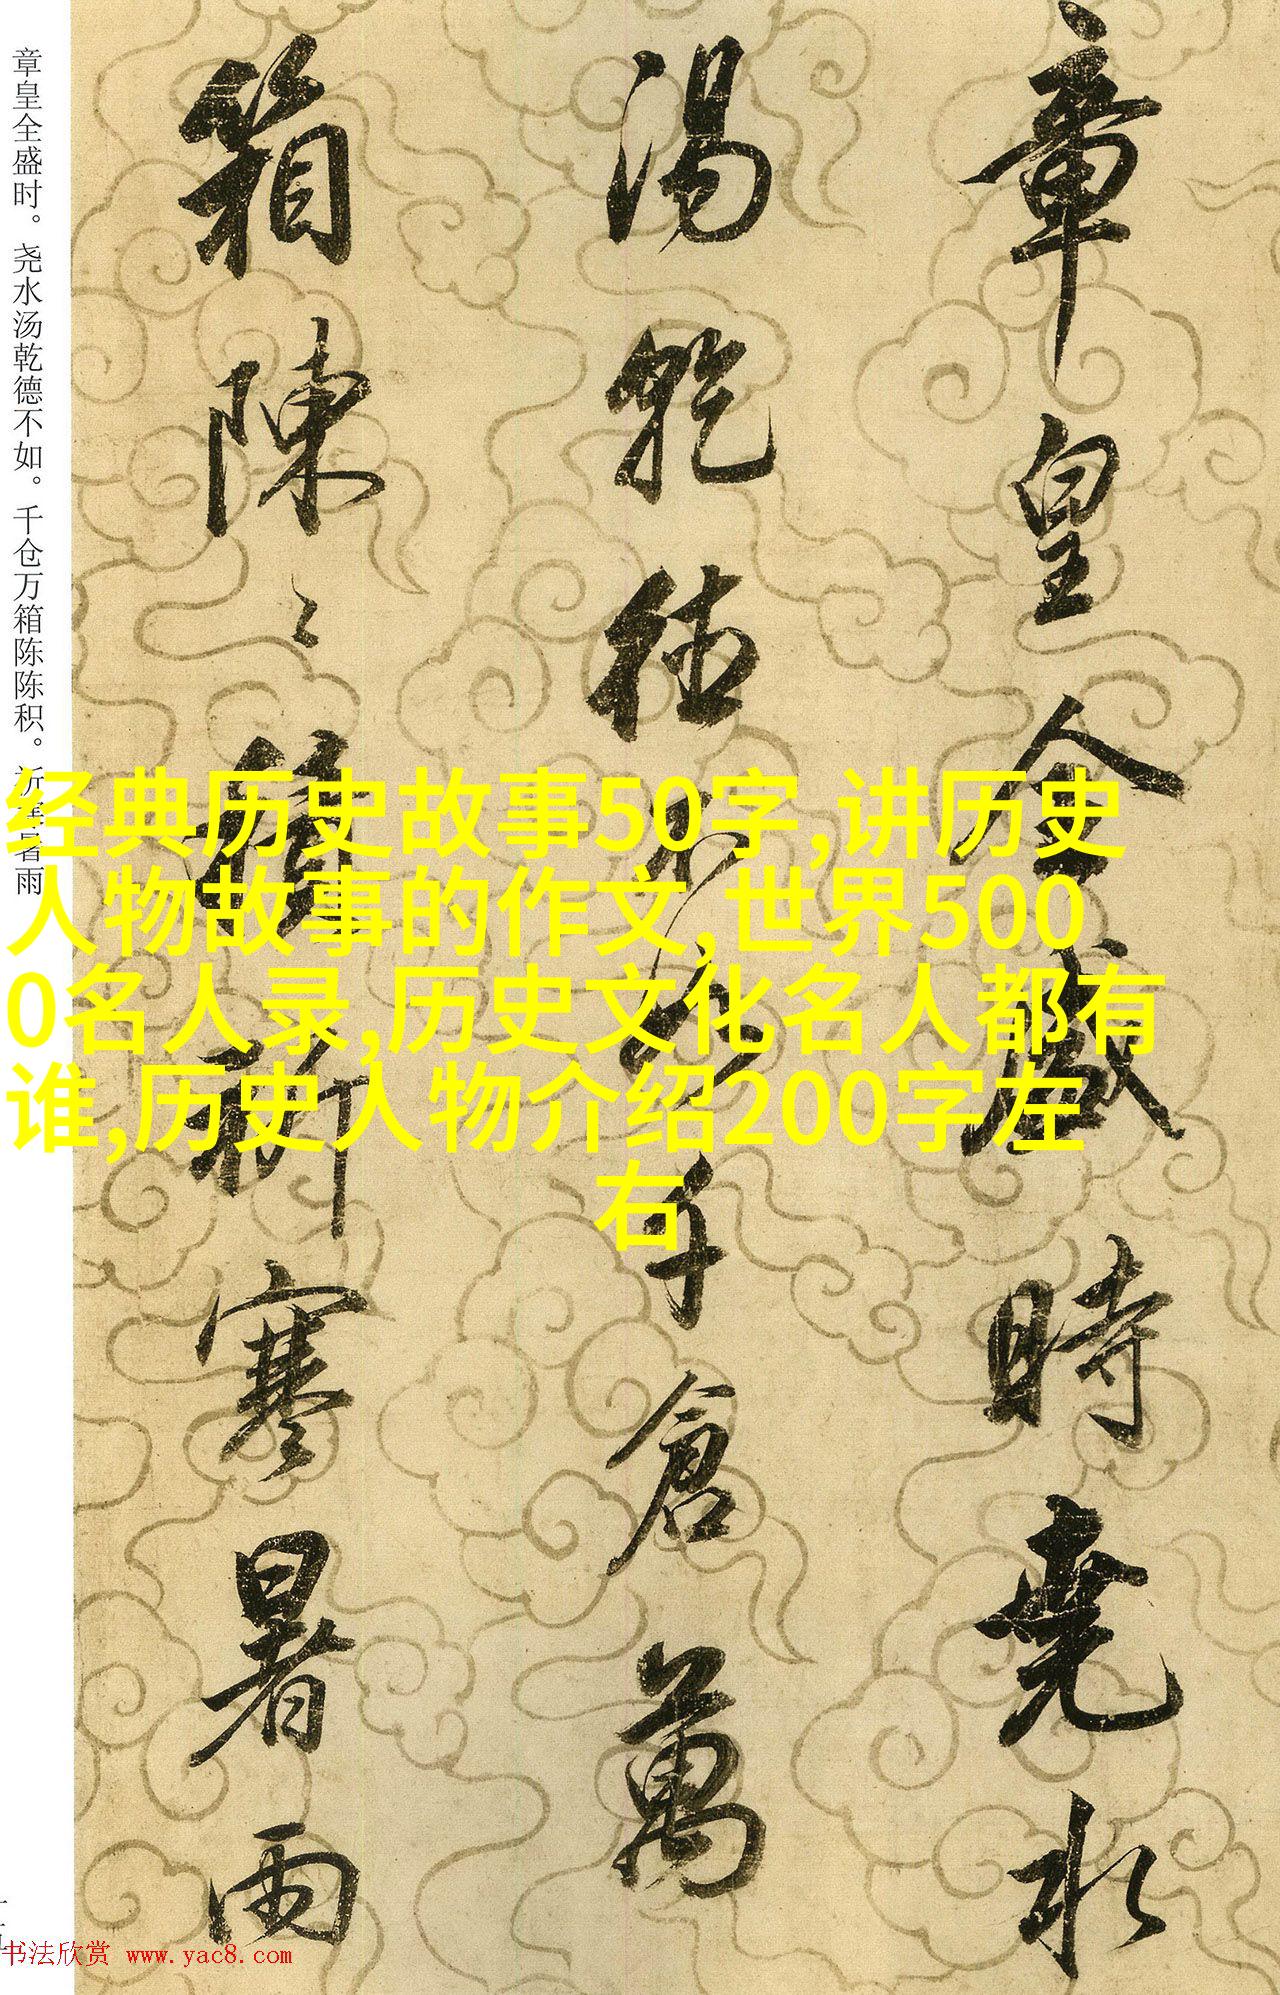 章皇全盛時堯水
湯乾德不如千倉萬
箱陳〻積祈寒暑雨
章皇全盛时。尧水汤乾德不如。千仓万箱陈陈积。祈寒暑雨
经典历史故事50字,讲历史
人物故事的作文,世界500
0名人录,历史文化名人都有
谁,历史人物介绍200字左
右
书法欣赏 www.yac8.com